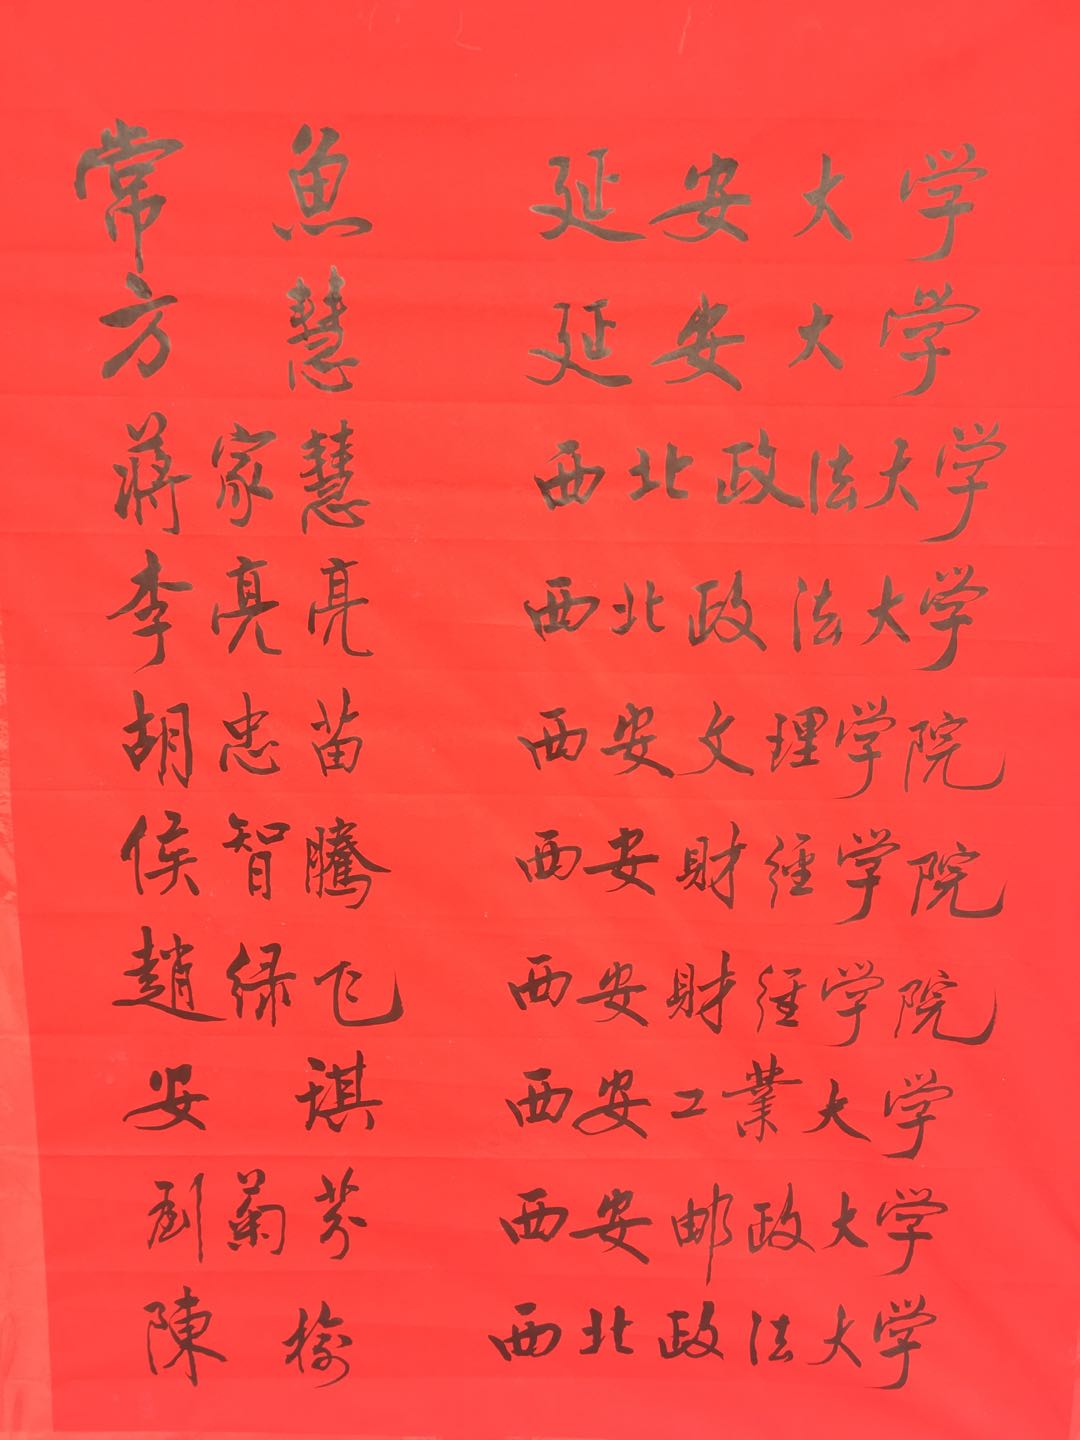 常魚 延安大学
方慧 延安大学
蔣家慧 西北政法大学
李亮亮 西北政法大学
胡忠苗 西安文理学院
侯智騰 西安財經学院
趙緑飞 西安財經学院
安琪 西安工業大学
劉菊芬 西安邮政大学
陳榆 西北政法大学